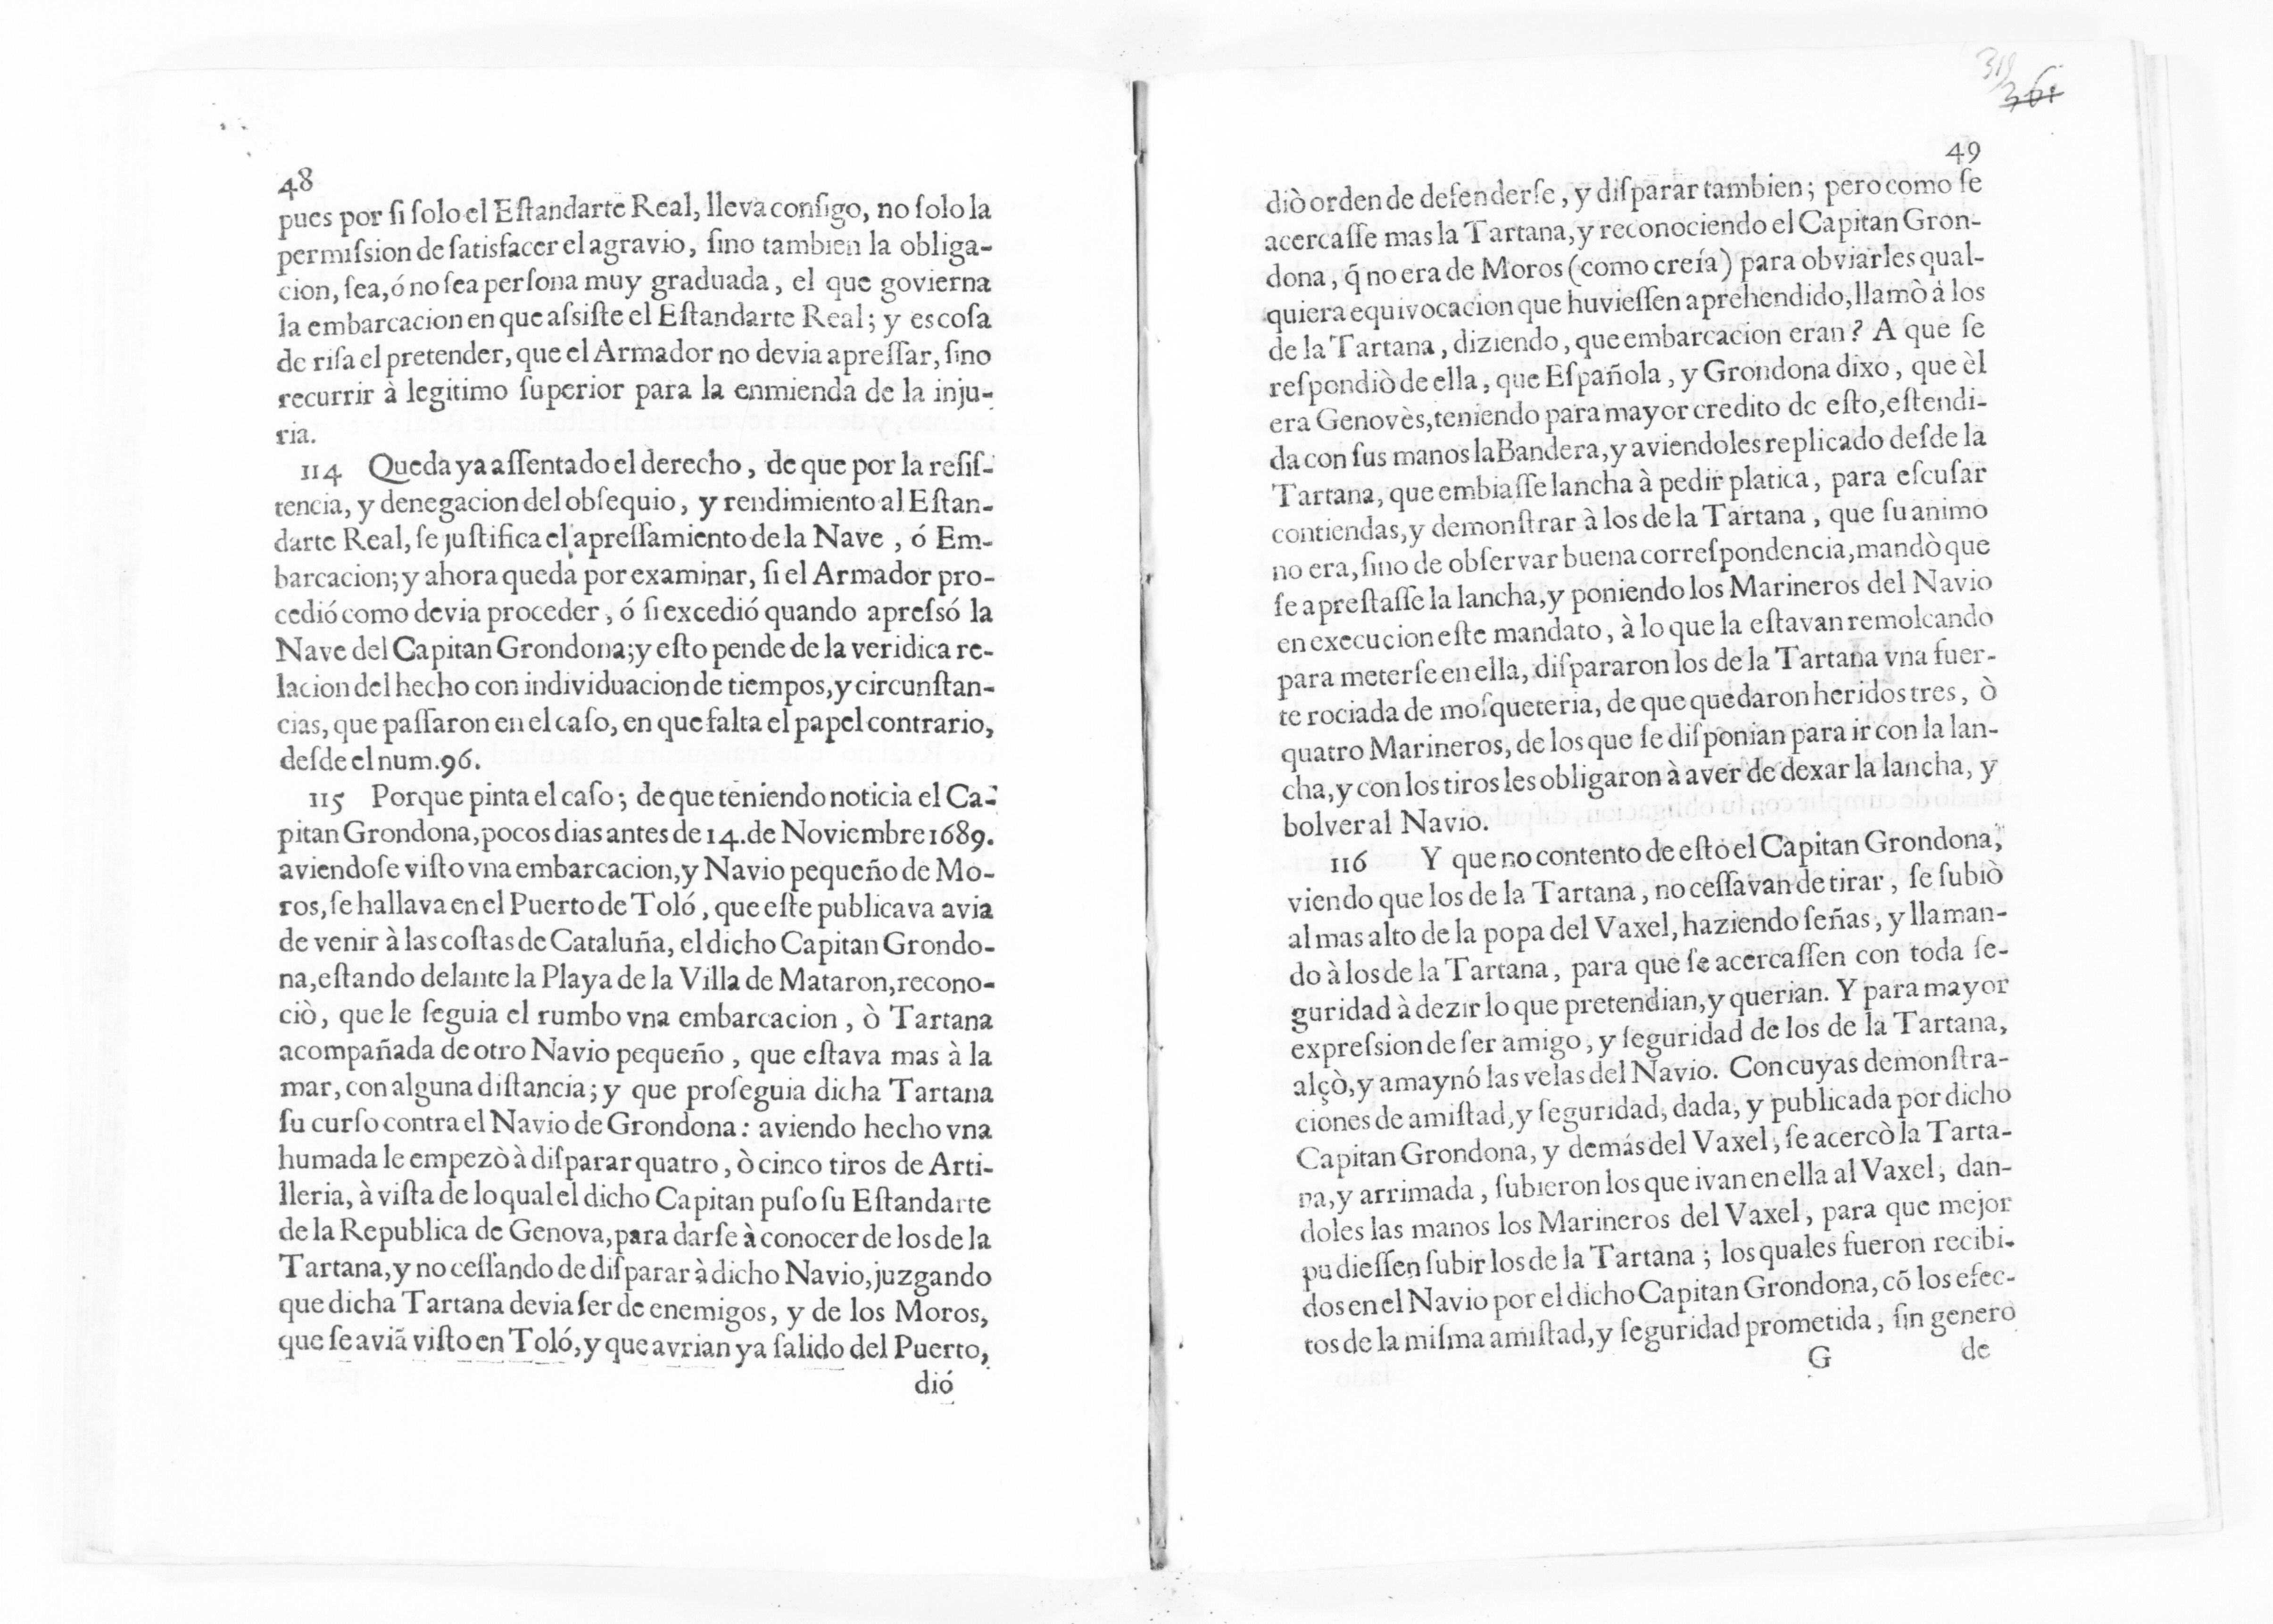 48
pues por ſi ſolo el Eſtandarte Real, lleva conſigo, no ſolo la
permiſsion de ſatisfacer el agravio, ſino tambien la obliga-
cion, ſea, ó no ſea perſona muy graduada, el que govierna
la embarcacion en que aſsiſte el Eſtandarte Real; y es coſa
de riſa el pretender, que el Armador no devia apreſſar, ſino
recurrir à legitimo ſuperior para la enmienda de la inju-
ria.
114 Queda ya aſſentado el derecho, de que por la reſiſ-
tencia, y denegacion del obſequio, y rendimiento al Eſtan-
darte Real, ſe juſtifica el apreſſamiento de la Nave, ó Em-
barcacion; y ahora queda por examinar, ſi el Armador pro-
cedió como devia proceder, ó ſi excedió quando apreſsó la
Nave del Capitan Grondona; y eſto pende de la veridica re-
lacion del hecho con individuacion de tiempos, y circunſtan-
cias, que paſſaron en el caſo, en que falta el papel contrario,
deſde el num. 96.
115 Porque pinta el caſo; de que teniendo noticia el Ca-
pitan Grondona, pocos dias antes de 14. de Noviembre 1689.
aviendoſe viſto vna embarcacion, y Navio pequeño de Mo-
ros, ſe hallava en el Puerto de Toló, que eſte publicava avia
de venir à las coſtas de Cataluña, el dicho Capitan Grondo-
na, eſtando delante la Playa de la Villa de Mataron, recono-
ciò, que le ſeguia el rumbo vna embarcacion, ò Tartana
acompañada de otro Navio pequeño, que eſtava mas à la
mar, con alguna diſtancia; y que proſeguia dicha Tartana
ſu curſo contra el Navio de Grondona: aviendo hecho vna
humada le empezò à diſparar quatro, ò cinco tiros de Arti-
lleria, à viſta de lo qual el dicho Capitan puſo ſu Eſtandarte
de la Republica de Genova, para darſe à conocer de los de la
Tartana, y no ceſſando de diſparar à dicho Navio, juzgando
que dicha Tartana devia ſer de enemigos, y de los Moros,
que ſe aviã viſto en Toló, y que avrian ya ſalido del Puerto,
dió
319
361
49
diò orden de defenderſe, y diſparar tambien; pero como ſe
acercaſſe mas la Tartana, y reconociendo el Capitan Gron-
dona, q̃ no era de Moros (como creía) para obviarles qual-
quiera equivocacion que huvieſſen aprehendido, llamò á los
de la Tartana, diziendo, que embarcacion eran? A que ſe
reſpondiò de ella, que Eſpañola, y Grondona dixo, que èl
era Genovès, teniendo para mayor credito de eſto, eſtendi-
da con ſus manos la Bandera, y aviendoles replicado deſde la
Tartana, que embiaſſe lancha à pedir platica, para eſcuſar
contiendas, y demonſtrar à los de la Tartana, que ſu animo
no era, ſino de obſervar buena correſpondencia, mandò que
ſe apreſtaſſe la lancha, y poniendo los Marineros del Navio
en execucion eſte mandato, à lo que la eſtavan remolcando
para meterſe en ella, diſpararon los de la Tartana vna fuer-
te rociada de moſqueteria, de que quedaron heridos tres, ò
quatro Marineros, de los que ſe diſponian para ir con la lan-
cha, y con los tiros les obligaron à aver de dexar la lancha, y
bolver al Navio.
116 Y que no contento de eſto el Capitan Grondona,
viendo que los de la Tartana, no ceſſavan de tirar, ſe ſubiò
al mas alto de la popa del Vaxel, haziendo ſeñas, y llaman-
do à los de la Tartana, para que ſe acercaſſen con toda ſe-
guridad à dezir lo que pretendian, y querian. Y para mayor
expreſsion de ſer amigo, y ſeguridad de los de la Tartana,
alçò, y amaynó las velas del Navio. Con cuyas demonſtra-
ciones de amiſtad, y ſeguridad, dada, y publicada por dicho
Capitan Grondona, y demás del Vaxel, ſe acercò la Tarta-
na, y arrimada, ſubieron los que ivan en ella al Vaxel, dan-
doles las manos los Marineros del Vaxel, para que mejor
pudieſſen ſubir los de la Tartana; los quales fueron recibi-
dos en el Navio por el dicho Capitan Grondona, cõ los efec-
tos de la miſma amiſtad, y ſeguridad prometida, ſin genero
G de